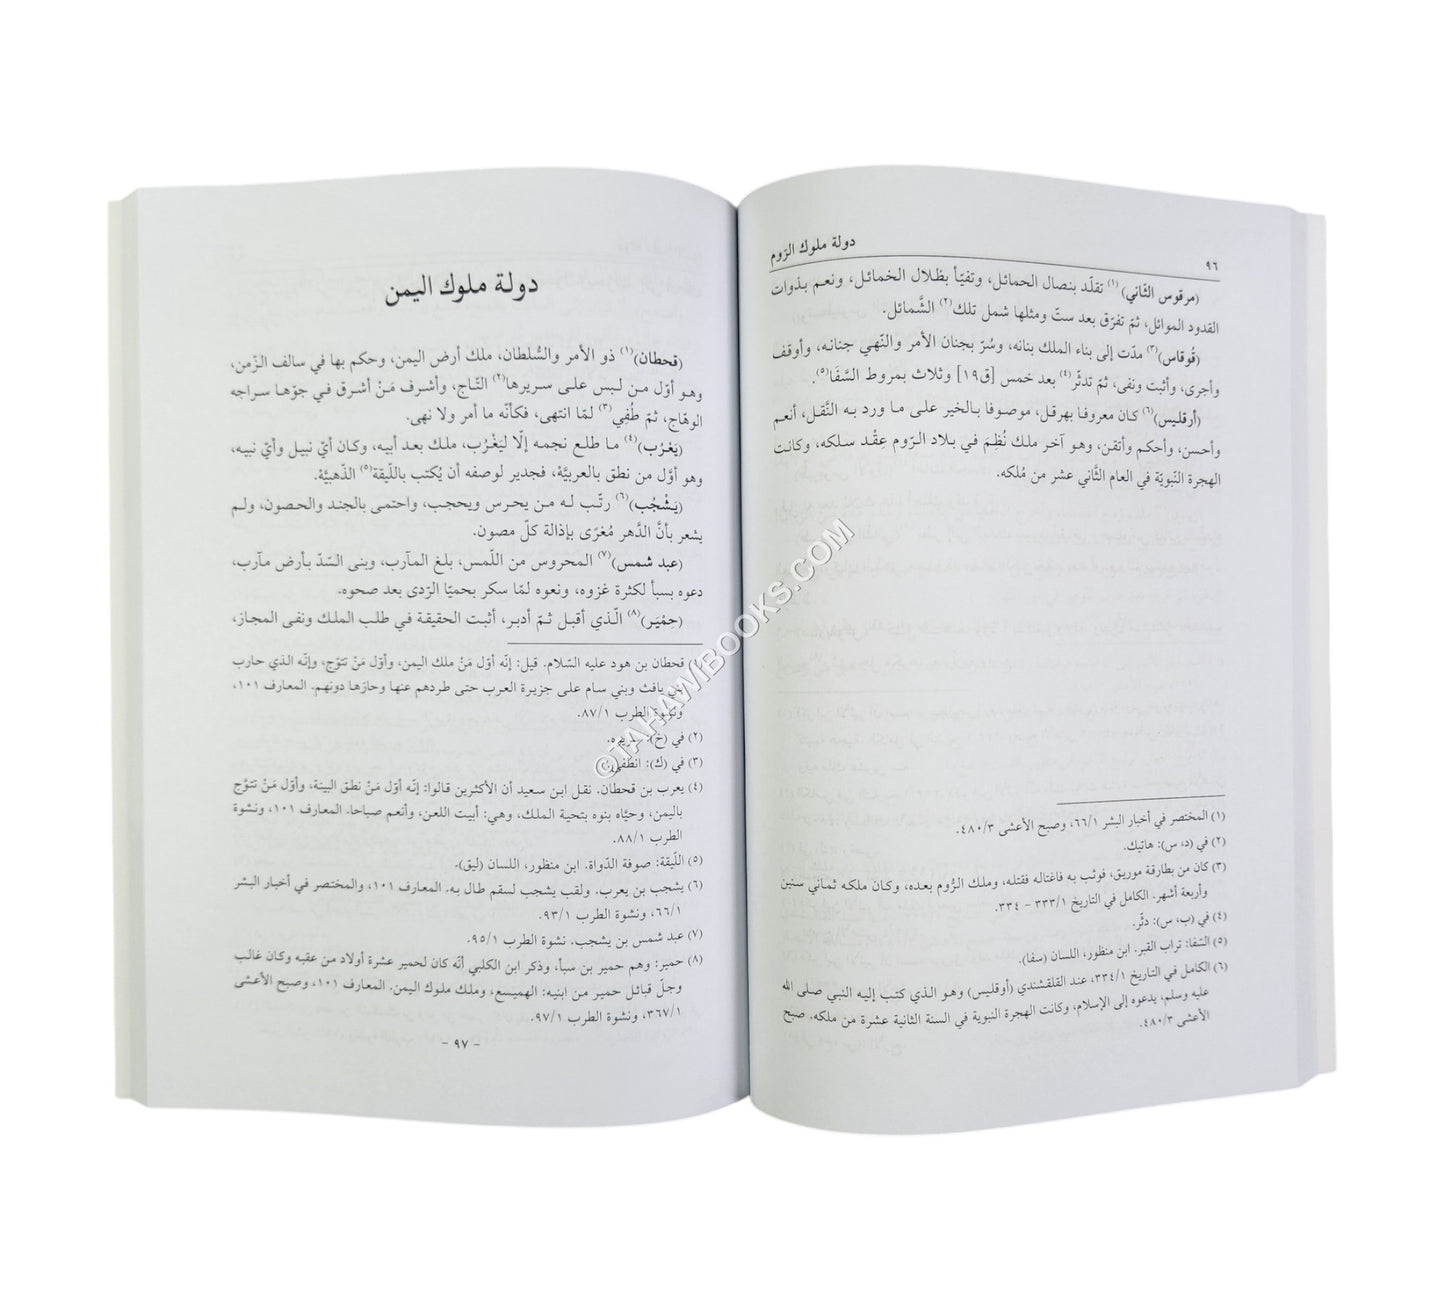 ٩٦
دولة ملوك الرّوم
(مرقوس الثّاني)(١) تقلّد بنصال الحمائل، وتفيّأ بظلال الخمائل، ونعم بذوات
القدود الموائل، ثمّ تفرّق بعد ستّ ومثلها شمل تلك(٢) الشَّمائل.
(قُوقاس)(٣) مدّت إلى بناء الملك بنانه، وسُرّ بجنان الأمر والنّهي جنانه، وأوقف
وأجرى، وأثبت ونفى، ثمّ تدثّر(٤) بعد خمس [ق١٩] وثلاث بمروط السَّفَا(٥).
(أرقليس)(٦) كان معروفا بهرقل، موصوفا بالخير على ما ورد به النَّقل، أنعم
وأحسن، وأحكم وأتقن، وهو آخر ملك نُظِمَ في بلاد الرّوم عِقْد سلكه، وكانت
الهجرة النّبويّة في العام الثّاني عشر من مُلكه.
(١) المختصر في أخبار البشر ٦٦/١، وصبح الأعشى ٤٨٠/٣.
(٢) في (د، س): هاتيك.
(٣) كان من بطارقة موريق، فوثب به فاغتاله فقتله، وملك الرُّوم بعده، وكان ملكه ثماني سنين
وأربعة أشهر. الكامل في التاريخ ٣٣٣/١ - ٣٣٤.
(٤) في (ب، س): دثّر.
(٥) السّفا: تراب القبر. ابن منظور، اللسان (سفا).
(٦) الكامل في التاريخ ٣٣٤/١، عند القلقشندي (أوقليس) وهو الذي كتب إليه النبي صلى الله
عليه وسلم، يدعوه إلى الإسلام، وكانت الهجرة النبوية في السنة الثانية عشرة من ملكه. صبح
الأعشى ٤٨٠/٣.
دولة ملوك اليمن
(قحطان)(١) ذو الأمر والسُّلطان، ملك أرض اليمن، وحكم بها في سالف الزّمن،
وهو أوّل من لبس على سريرها(٢) التّاج، وأشرف مَنْ أشرق في جوّها سراجه
الوهّاج، ثمّ طُفِي(٣) لمّا انتهى، فكأنّه ما أمر ولا نهى.
(يَعْرُب)(٤) ما طلع نجمه إلّا ليَغْرُب، ملك بعد أبيه، وكان أيّ نبيل وأيّ نبيه،
وهو أوَّل من نطق بالعربيَّهْ، فجدير لوصفه أن يُكتب باللّيقة(٥) الذّهبيَّهْ.
(يَشْجُب)(٦) رتّب له من يحرس ويحجب، واحتمى بالجند والحصون، ولم
يشعر بأنَّ الدَّهر مُغرًى بإذالة كلّ مصون.
(عبد شمس)(٧) المحروس من اللّمس، بلغ المآرب، وبنى السّدّ بأرض مآرب،
دعوه بسبأ لكثرة غزوه، ونعوه لمّا سكر بحميّا الرّدى بعد صحوه.
(حِمْيَر)(٨) الّذي أقبل ثمّ أدبر، أثبت الحقيقة في طلب الملك ونفى المجاز،
قحطان بن هود عليه السّلام. قيل: إنّه أوّل مَنْ ملك اليمن، وأوّل مَنْ تتوّج، وإنّه الذي حارب
بني يافث وبني سام على جزيرة العرب حتى طردهم عنها وحازها دونهم. المعارف ١٠١،
ونشوة الطرب ٨٧/١.
(٢) في (خ): سريره.
(٣) في (ك): انطفي.
(٤) يعرب بن قحطان. نقل ابن سعيد أن الأكثرين قالوا: إنه أوّل مَنْ نطق البينة، وأوّل مَنْ تتوّج
باليمن، وحيّاه بنوه بتحية الملك، وهي: أبيت اللعن، وأنعم صباحا. المعارف ١٠١، ونشوة
الطرب ٨٨/١.
(٥) اللّيقة: صوفة الدّواة. ابن منظور، اللسان (ليق).
(٦) يشجب بن يعرب. ولقب يشجب لسقم طال به. المعارف ١٠١، والمختصر في أخبار البشر
٦٦/١، ونشوة الطرب ٩٣/١.
(٧) عبد شمس بن يشجب. نشوة الطرب ٩٥/١.
(٨) حمير: وهم حمير بن سبأ، وذكر ابن الكلبي أنّه كان لحمير عشرة أولاد من عقبه وكان غالب
وجلّ قبائل حمير من ابنيه: الهميسع، وملك ملوك اليمن. المعارف ١٠١، وصبح الأعشى
٣٦٧/١، ونشوة الطرب ٩٧/١.
- ٩٧ -
©TAHAWIBOOKS.COM